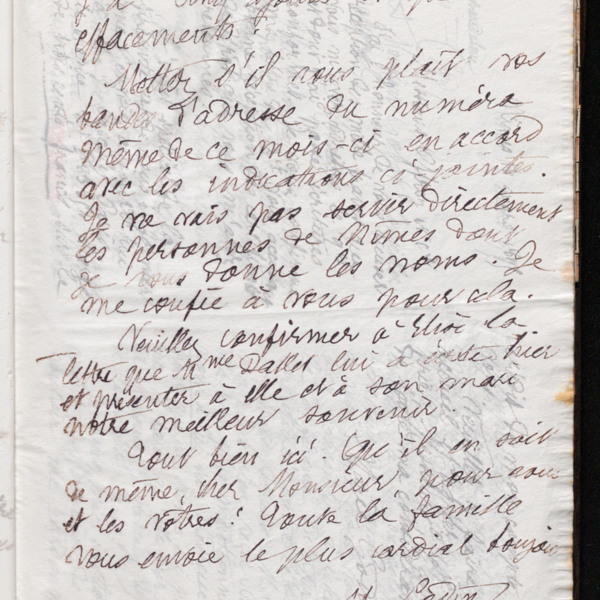 effacements !
Mettez s'il vous plaît vos
bandes d'adresse du numéro
même de ce mois-ci en accord
avec les indications ci jointes.
Je ne vais pas servir directement
les personnes de Nîmes dont
je vous donne les noms. Je
me confie à vous pour cela.
Veuillez confirmer à Elise la
lettre que Mme Dallet lui a écrite hier
et présenter à elle et à son mari
notre meilleur souvenir.
Tout bien ici. Qu'il en soit
de même, cher Monsieur, pour vous
et les vôtres ! Toute la famille
vous envoie le plus cordial bonjour